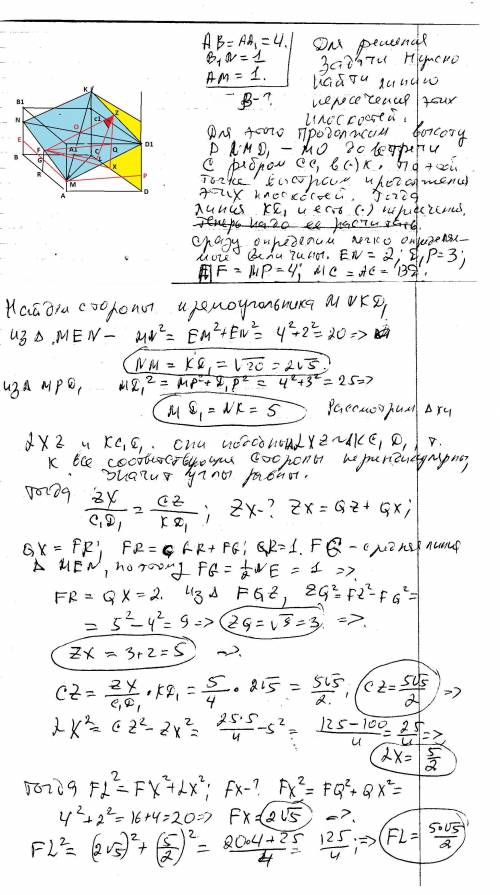 AB = AA₁ = 4.
B₁N = 1
AM = 1.
B-?
Для решения
задачи нужно
найти линию
пересечения этих
плоскостей.
Для этого продолжим высоту
до встречи
с ребром CC₁ в (·) K. По этой
точке выстроим продолжения
этих плоскостей. Тогда
линия KD₁ и есть (·) пересечения.
теперь надо ее расчитать.
Сразу определим легко определяе-
мые величины. EN = 2; D₁P = 3;
F = MP = 4; MC = AC = √32.
K
B1
C1
Z
N
O
E
F
A1
C
Q
D1
B
G
L
R
X
M
P
A
D
Найдем стороны прямоугольника MNKD₁
из Δ MEN - MN² = EM² + EN² = 4² + 2² = 20 =>
NM = KD₁ = √20 = 2√5.
из Δ MPD₁ MD₁² = MP² + D₁P² = 4² + 3² = 25 =>
MD₁ = NK = 5 Рассмотрим Δ ки
LXZ и KC₁D₁. они подобны ΔLXZ ~ ΔKC₁D₁, т.
к все соответствующие стороны перпендикулярны,
значит углы равны.
Тогда ZX/C₁D₁ = CZ/KD₁; ZX-? ZX = QZ + QX;
QX = FR; FR = GR + FG; GR = 1. FG - средняя линия
Δ MEN, поэтому FG = ½NE = 1 =>.
FR = QX = 2. Из Δ FQZ, ZQ² = FZ² - FQ² =
= 5² - 4² = 9 => ZQ = √9 = 3 =>.
ZX = 3 + 2 = 5 =>.
CZ = ZX/C₁D₁ · KD₁ = 5/4 · 2√5 = 5√5/2, CZ = 5√5/2 =>
LX² = CZ² - ZX² = 25·5/4 - 5² = 125-100/4 = 25/4 =>
LX = 5/2
Тогда FL² = FX² + LX²; FX-? FX² = FQ² + QX² =
4² + 2² = 16 + 4 = 20 => FX = 2√5 =>.
FL² = (2√5)² + (5/2)² = 20·4+25/4 = 125/4; => FL = 5√5/2